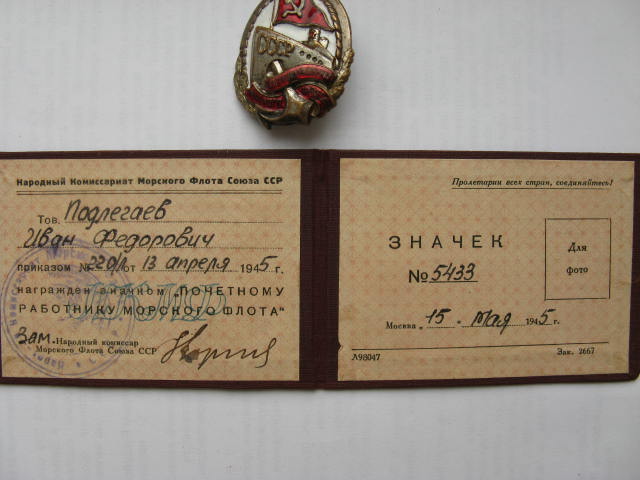 СССР
Народный Комиссариат Морского Флота Союза ССР
Тов. Подлегаев
Иван Федорович
приказом № 220/л от 13 апреля 1945 г.
награжден значком „ПОЧЕТНОМУ
РАБОТНИКУ МОРСКОГО ФЛОТА“
Зам. Народный комиссар
Морского Флота Союза ССР
Пролетарии всех стран, соединяйтесь!
ЗНАЧЕК
№ 5433
Для
фото
Москва „15 - мая 1945 г.
Л98047 Зак. 2667